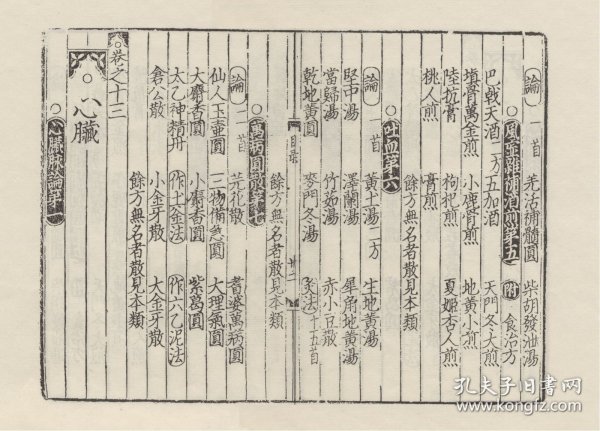 論一首 羌活補髓圓 柴胡發泄湯
風虛雜補酒煎第五 附 食治方
巴戟天酒二方 五加酒 天門冬大煎
填骨萬金煎 小鹿骨煎 地黃小煎
陸抗膏 枸杞煎 夏姬杏人煎
桃人煎 膏煎
餘方無名者散見本類
吐血第六
論一首 黃土湯二方 生地黃湯
堅中湯 澤蘭湯 犀角地黃湯
當歸湯 竹茹湯 赤小豆散
乾地黃圓 麥門冬湯 灸法十五首
目錄 廿二
餘方無名者散見本類
萬病圓散第七
論二首 芫花散 耆婆萬病圓
仙人玉壺圓 三物備急圓 大理氣圓
大麝香圓 小麝香圓 紫葛圓
太乙神精丹 作土釜法 作六乙泥法
倉公散 小金牙散 大金牙散
餘方無名者散見本類
卷之十三
心臟
心臟脉論第一
孔夫子旧书网
www.kongfz.com